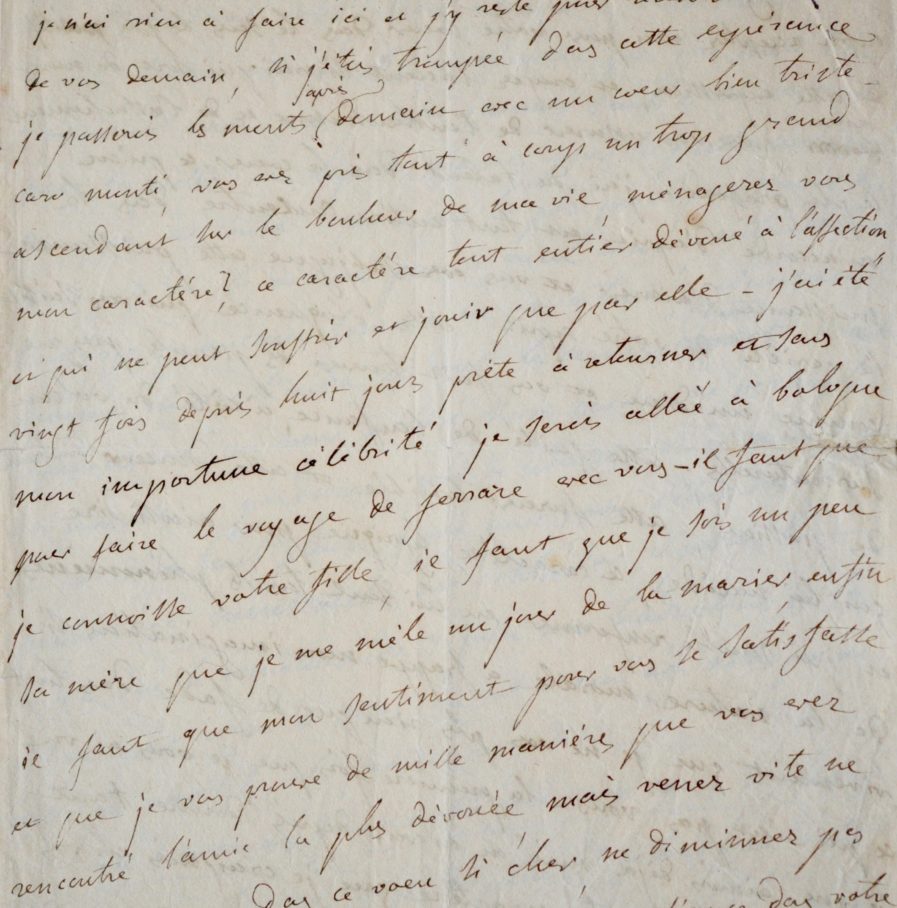 je n'ai rien à faire ici et j'y reste pour
de vos demain, si j'étois trompée dans cette espérance
après
je passerois les monts demain avec un coeur bien triste –
caro monti, vous avez pris tout à coup un trop grand
ascendant sur le bonheur de ma vie ménagerez vous
mon caractére? ce caractére tout entiér dévoué à l'affection
et qui ne peut souffrir et jouir que par elle – j'ai été
vingt fois depuis huit jours préte à retourner et sans
mon importune célébrité je serois alleé à bologne
pour faire le voyage de ferrare avec vous – il faut que
je connoisse votre fille, ie faut que je sois un peu
sa mére que je me mèle un jour de la marier enfin
ie faut que mon sentiment pour vous se satisfasse
et que je vous prouve de mille maniéres que vous avez
rencontré l'amie la plus dévouée mais venez vite ne
dans ce voeu si cher ne diminuez pas
dans votre